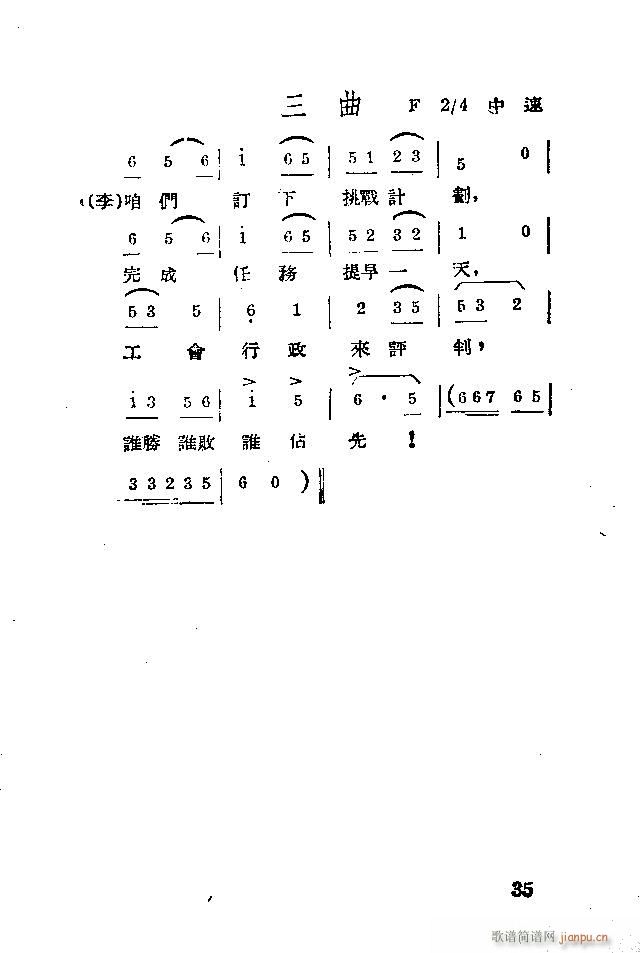 三曲 F 2/4 中速
6 5 6 | i 6 5 | 5 1 2 3 | 5 0 |
(李)咱們 訂下 挑戰計劃，
6 5 6 | i 6 5 | 5 2 3 2 | 1 0 |
完成 任務 提早一天，
5 3 5 | 6 1 | 2 3 5 | 5 3 2 |
工會行政來評判，
i 3 5 6 | i 5 | 6 · 5 | (6 6 7 6 5 |
誰勝誰敗誰佔先！
3 3 2 3 5 | 6 0 ) ‖
35
歌谱简谱网 jianpu.cn